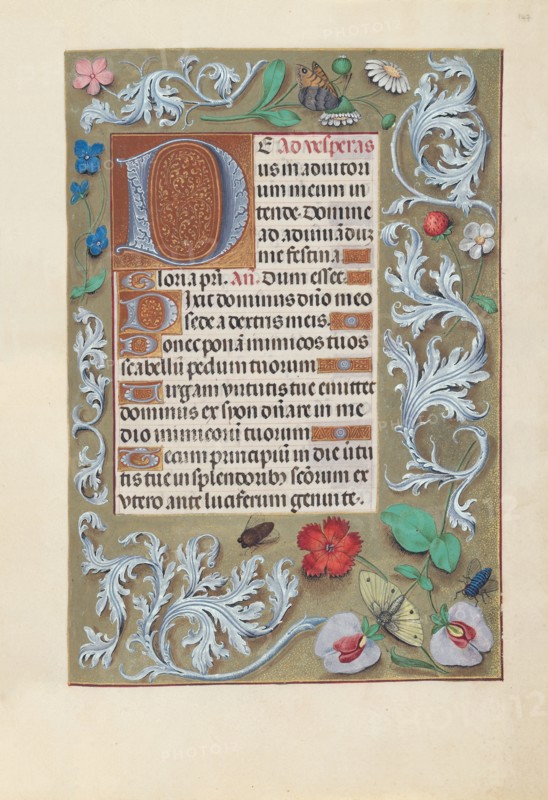 147
DE Ad vesperas
us in adiutori
um meum in
tende. Domine
ad adiuuādū
me festina.
Gloria pr̄i. Añ. Dum esset.
Dixit dominus dño meo
sede a dextris meis.
Donec ponā inimicos tuos
scabellū pedum tuorum
Uirgam uirtutis tue emittet
dominus ex syon dn̄are in me
dio inimicorū tuorum
Tecum principiū in die uirtu
tis tue in splendoribꝫ sc̄orum ex
vtero ante luciferum genui te.
PHOTO12